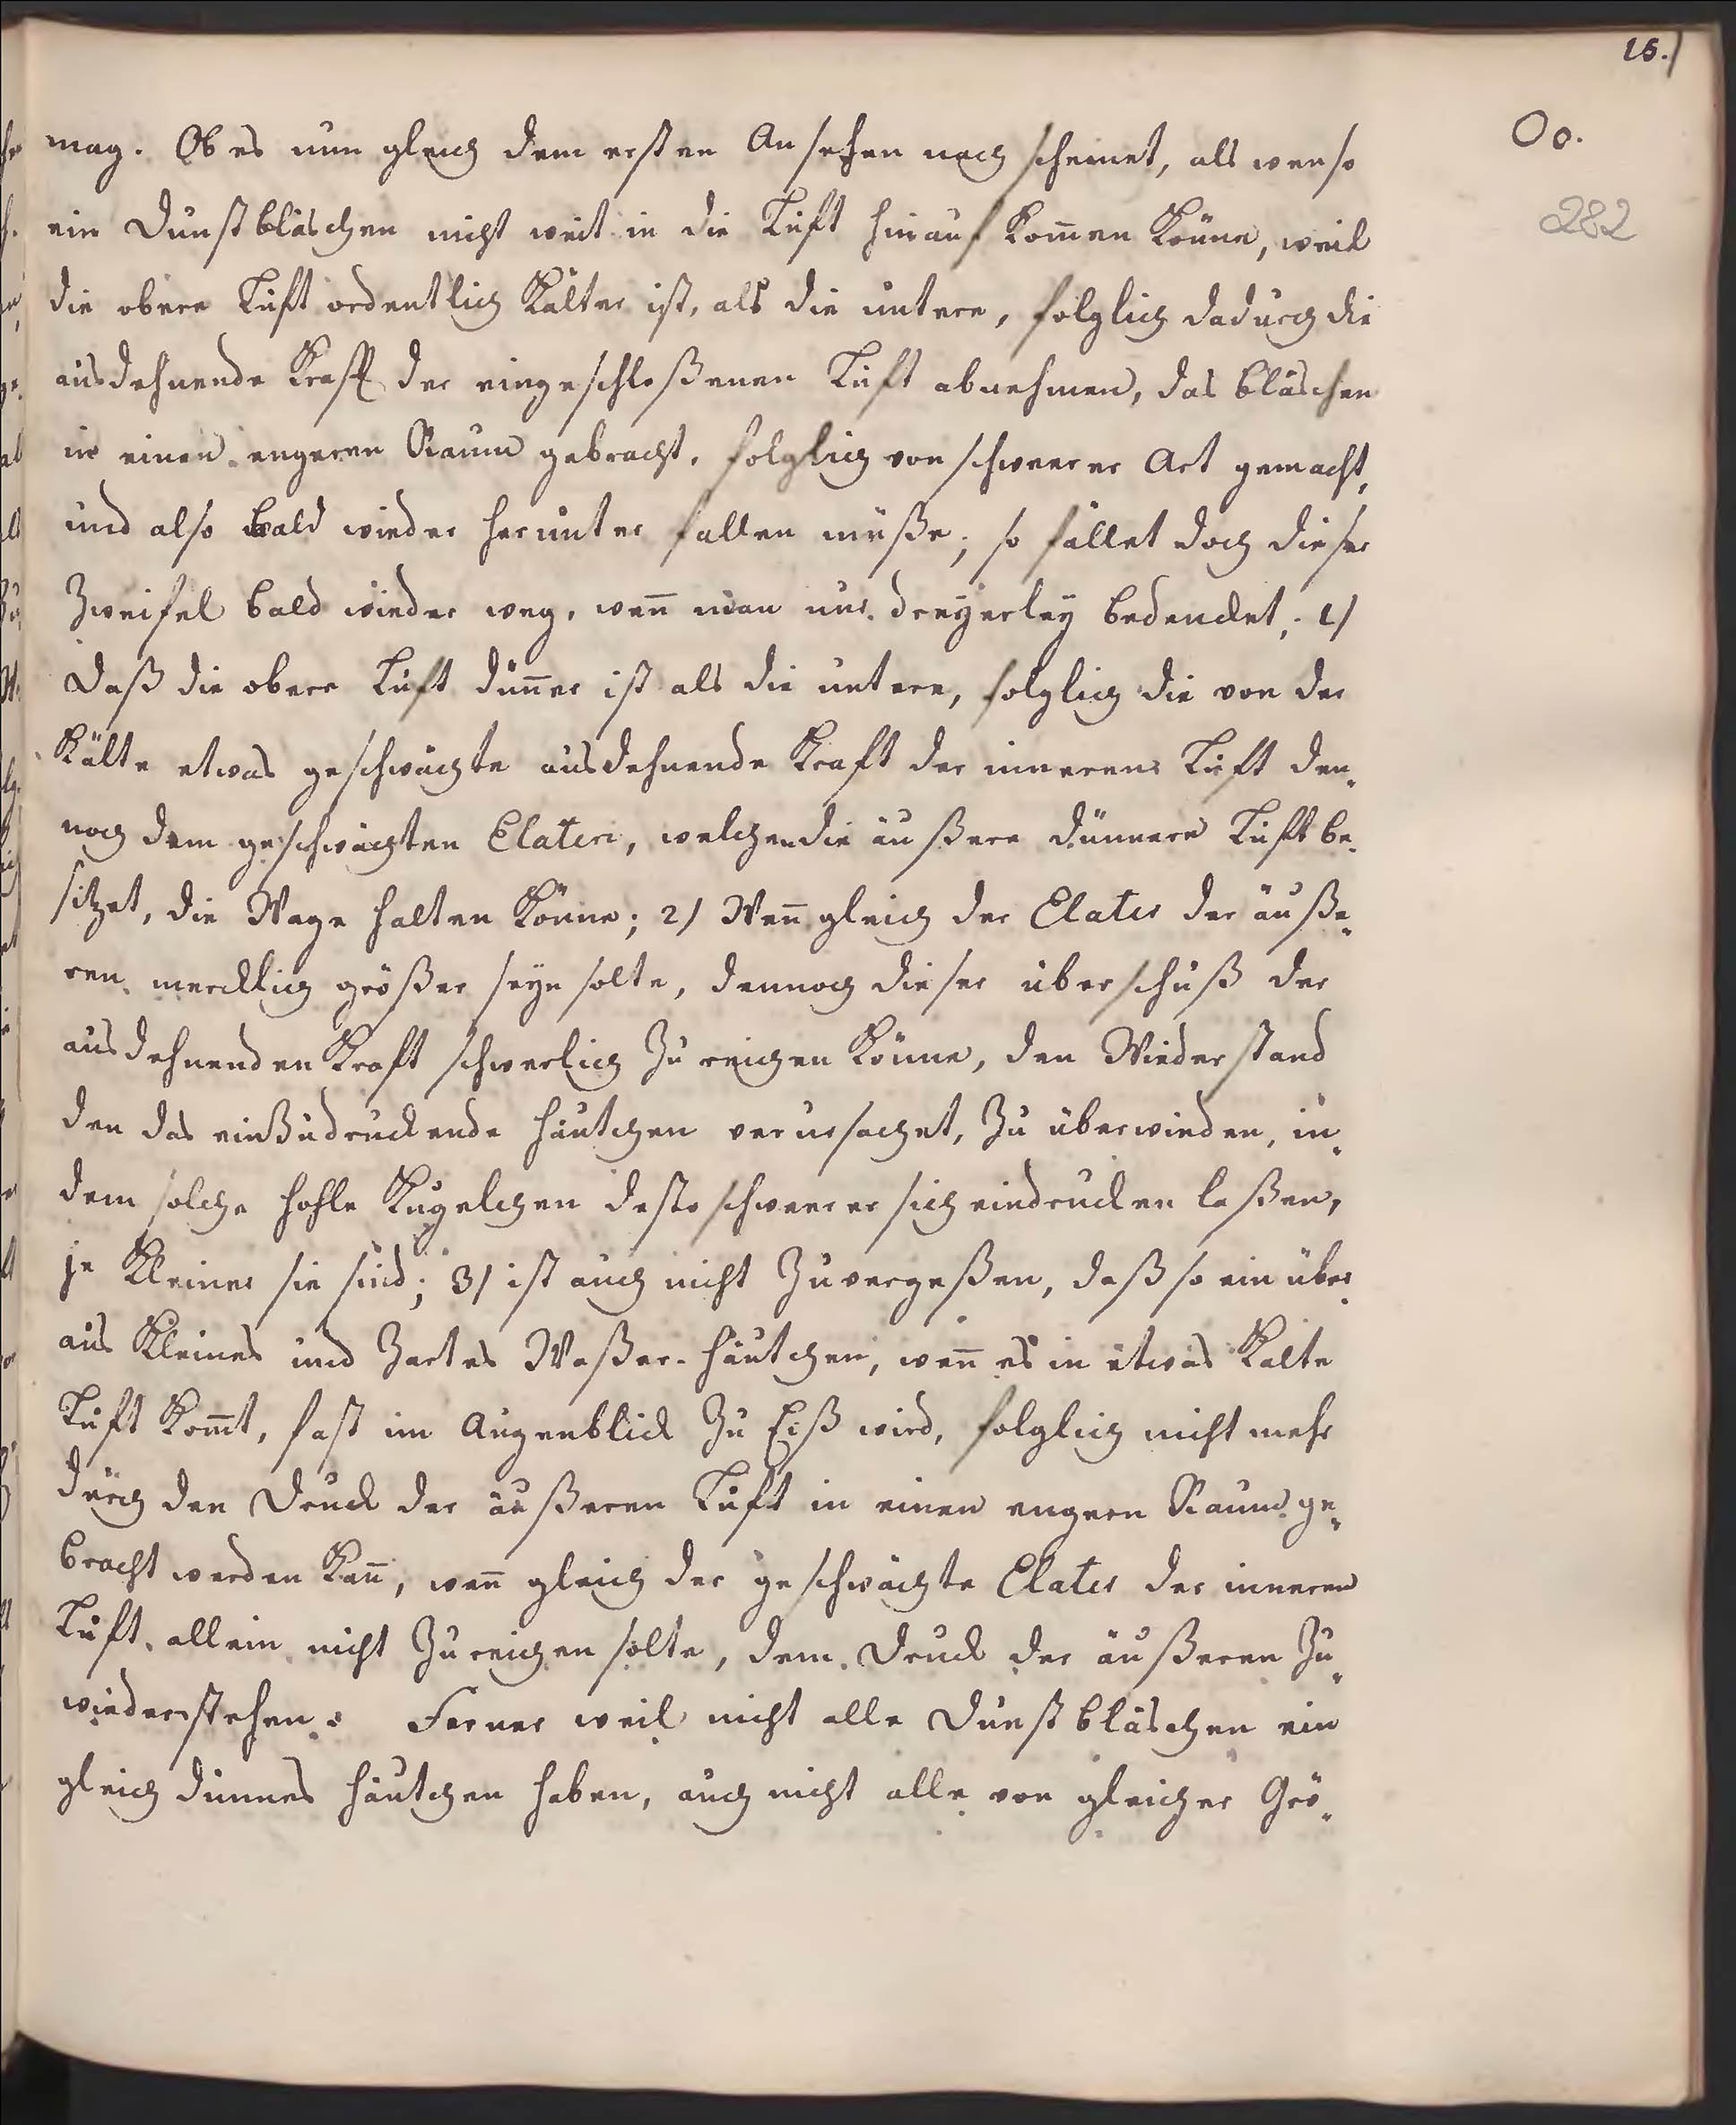 15.)
Oo.
282
mag. Ob es nun gleich dem ersten Ansehen nach scheinet, als wen so
ein Dunstbläschen nicht weit in die Luft hinauf kom̄en könne, weil
die obere Luft ordentlich kälter ist, als die untere, folglich dadurch die
ausdehnende Krafft der eingeschloßenen Luft abnehmen, das Bläschen
in einen engeren Raum gebracht, folglich von schwerer Art gemacht,
und also bald wieder herunter fallen müße; so fället doch dieser
Zweifel bald wieder weg, wen̄ man nur dreyerley bedencket; 1)
Daß die obere Luft dün̄er ist als die untere, folglich die von der
Kälte etwas geschwächte ausdehnende Kraft der inneren Luft den„
noch dem geschwächten Elateri, welchen die äußere dünnere Luft be„
sitzet, die Wage halten könne; 2) Wen̄ gleich der Elater der äuße„
ren mercklich größer seyn solte, dennoch dieser überschuß der
ausdehnenden Kraft schwerlich zu reichen könne, den Wiederstand
den das einzudruckende Häutchen verursachet, zu überwinden, in„
dem solche hohle Kugelchen desto schweerer sich eindrucken laßen,
je kleiner sie sind; 3) ist auch nicht zu vergeßen, daß so ein über„
aus kleines und zartes Waßer-Häutchen, wen̄ es in etwas kalte
Luft kom̄t, fast im Augenblick zu Eiß wird, folglich nicht mehr
durch den Druck der äußeren Luft in einen engern Raum ge„
bracht werden kan̄, wen̄ gleich der geschwächte Elater der inneren
Luft allein nicht zureichen solte, dem Druck der äußeren zu„
wiederstehen. Ferner weil nicht alle Dunstbläschen ein
gleich dünnes Häutchen haben, auch nicht alle von gleicher Grö„